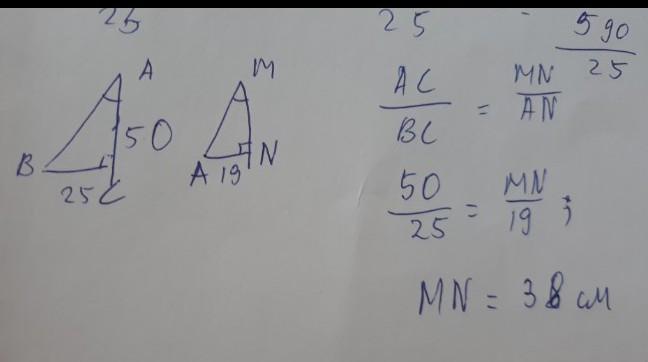 25
25
590
25
A
50
B
25 C
M
A 19 N
AC / BC = MN / AN
50 / 25 = MN / 19 ;
MN = 38 см